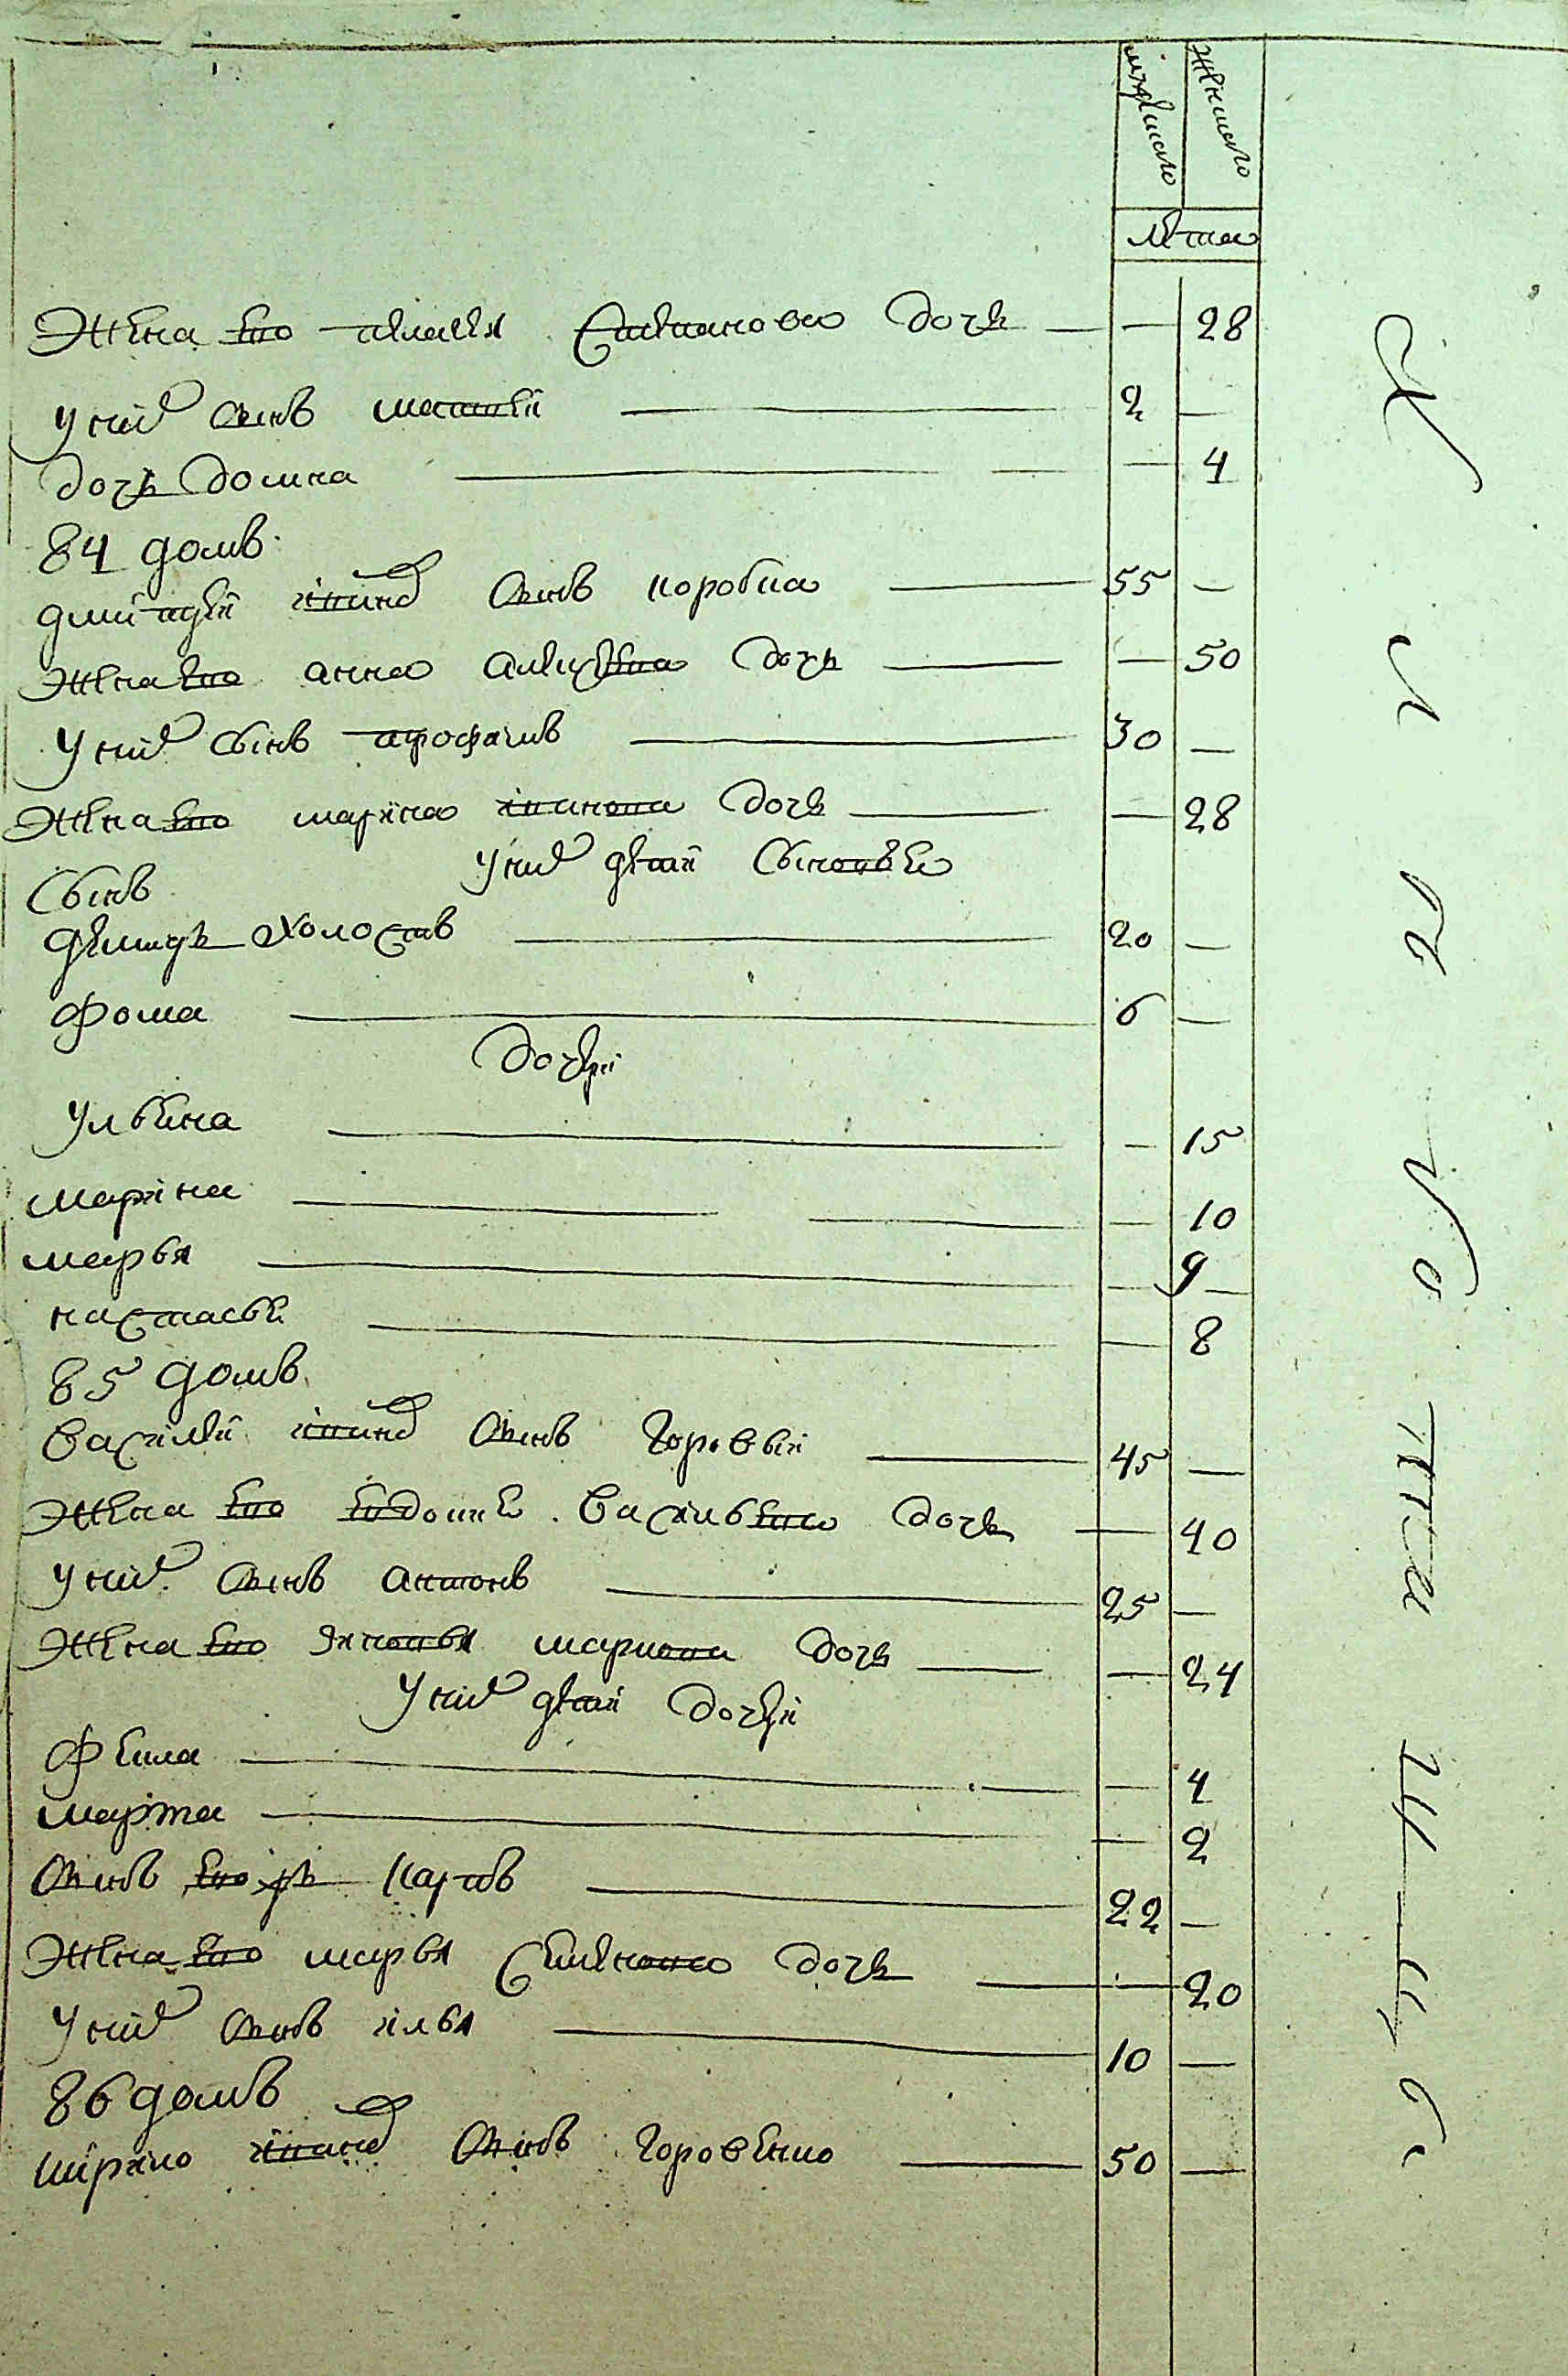 мужеска женска
лета
Жена его Степанова дочь — — 28
У них сынъ матвей — 2 —
дочь домна — — 4
84 домъ
дмитрей ивановъ сынъ коробка — 55 —
Жена его анна алексеева дочь — — 50
У них сынъ трофимъ — 30 —
Жена его марина иванова дочь — — 28
У них дети Сыновья
Сынъ
демидъ холостъ — 20 —
фома — 6 —
дочери
Ульяна — — 15
марина — — 10
марья — — 9 —
настасья — — 8
85 домъ
василей ивановъ сынъ Боровый — 45 —
Жена его евдокия васильева дочь — 40
У них сынъ антонъ — 25 —
Жена его зиновья маркова дочь — — 24
У них дети дочери
Фекла — — 4
марта — — 2
Сынъ его карпъ — 22 —
Жена его марья Семенова дочь — — 20
У них сынъ илья — 10 —
86 домъ
кирило ивановъ сынъ — 50 —